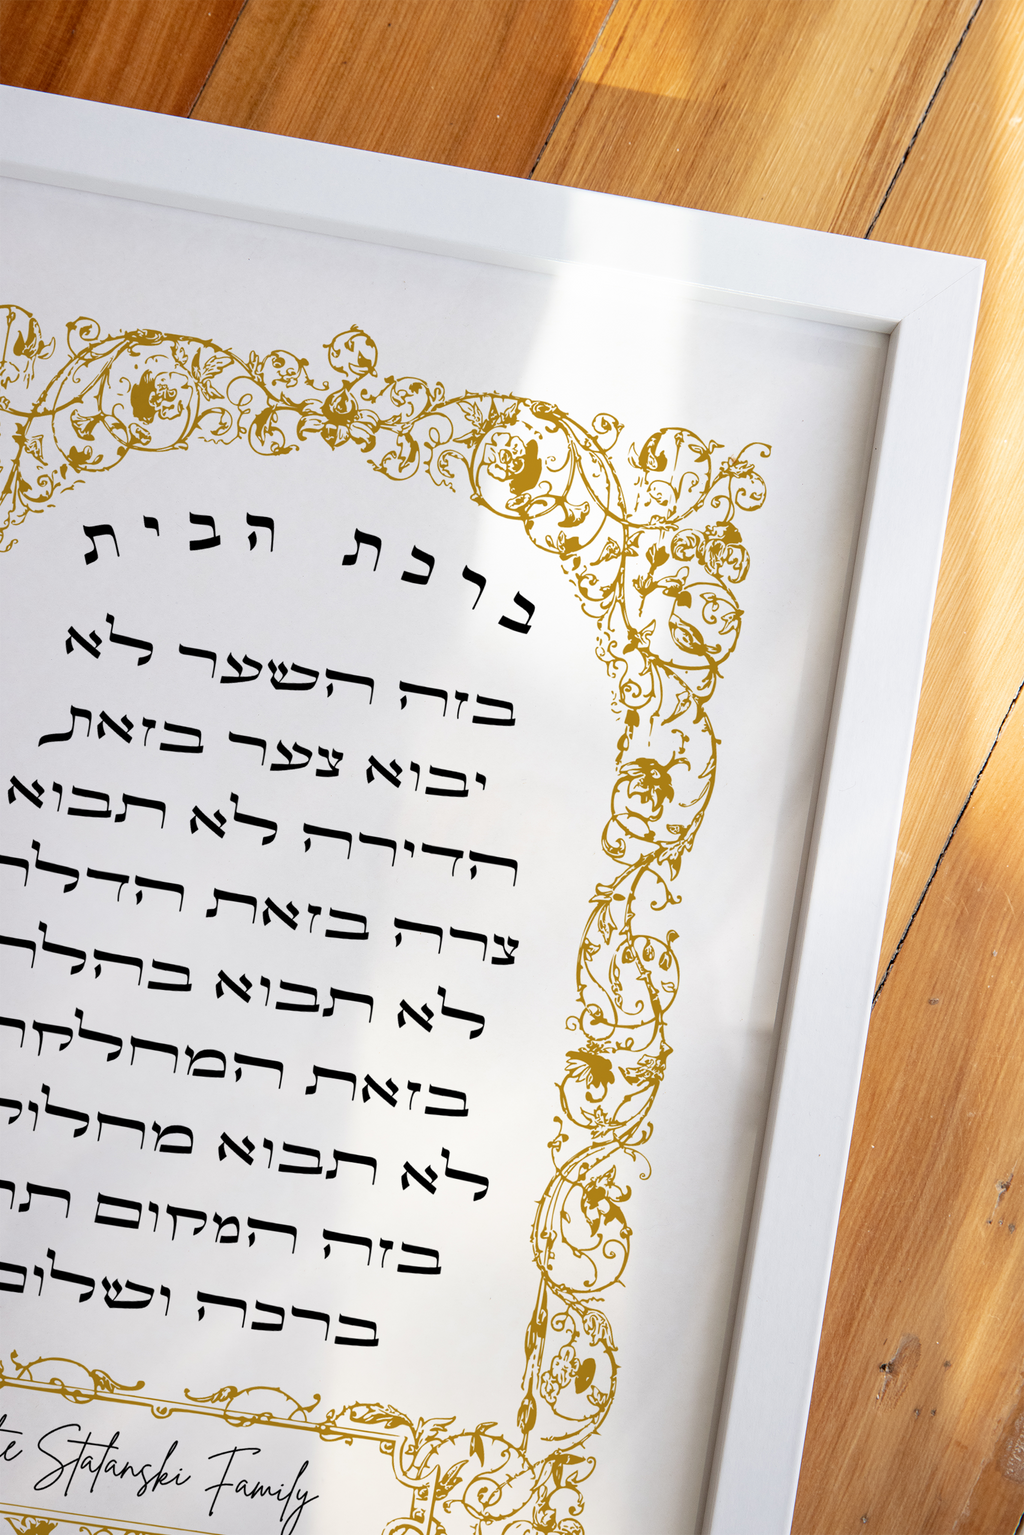 ברכת הבית
בזה השער לא
יבוא צער בזאת
הדירה לא תבוא
צרה בזאת
לא תבוא
בזאת
לא תבוא
בזה המקום
ברכה ושלום
Stalanski Family